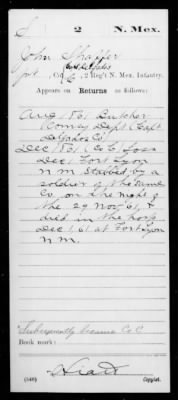 S 2 N. Mex.
John Shaffer
Pvt, Co. C, 2 Reg't N. Mex. Infantry.
Appears on Returns as follows:
Aug 1861 Butcher
(Comsy Dept) (Capt
Co)
Dec 1861 (Co C) Loss
Dec 1 Fort Lyon
N M Stabbed by a
soldier of the same
Co. on the night of
the 29 Nov 61, &
died in the hosp
Dec 1, 61 at Fort Lyon
N M.
Subsequently became Co C
Book mark:
(546) Copyist.